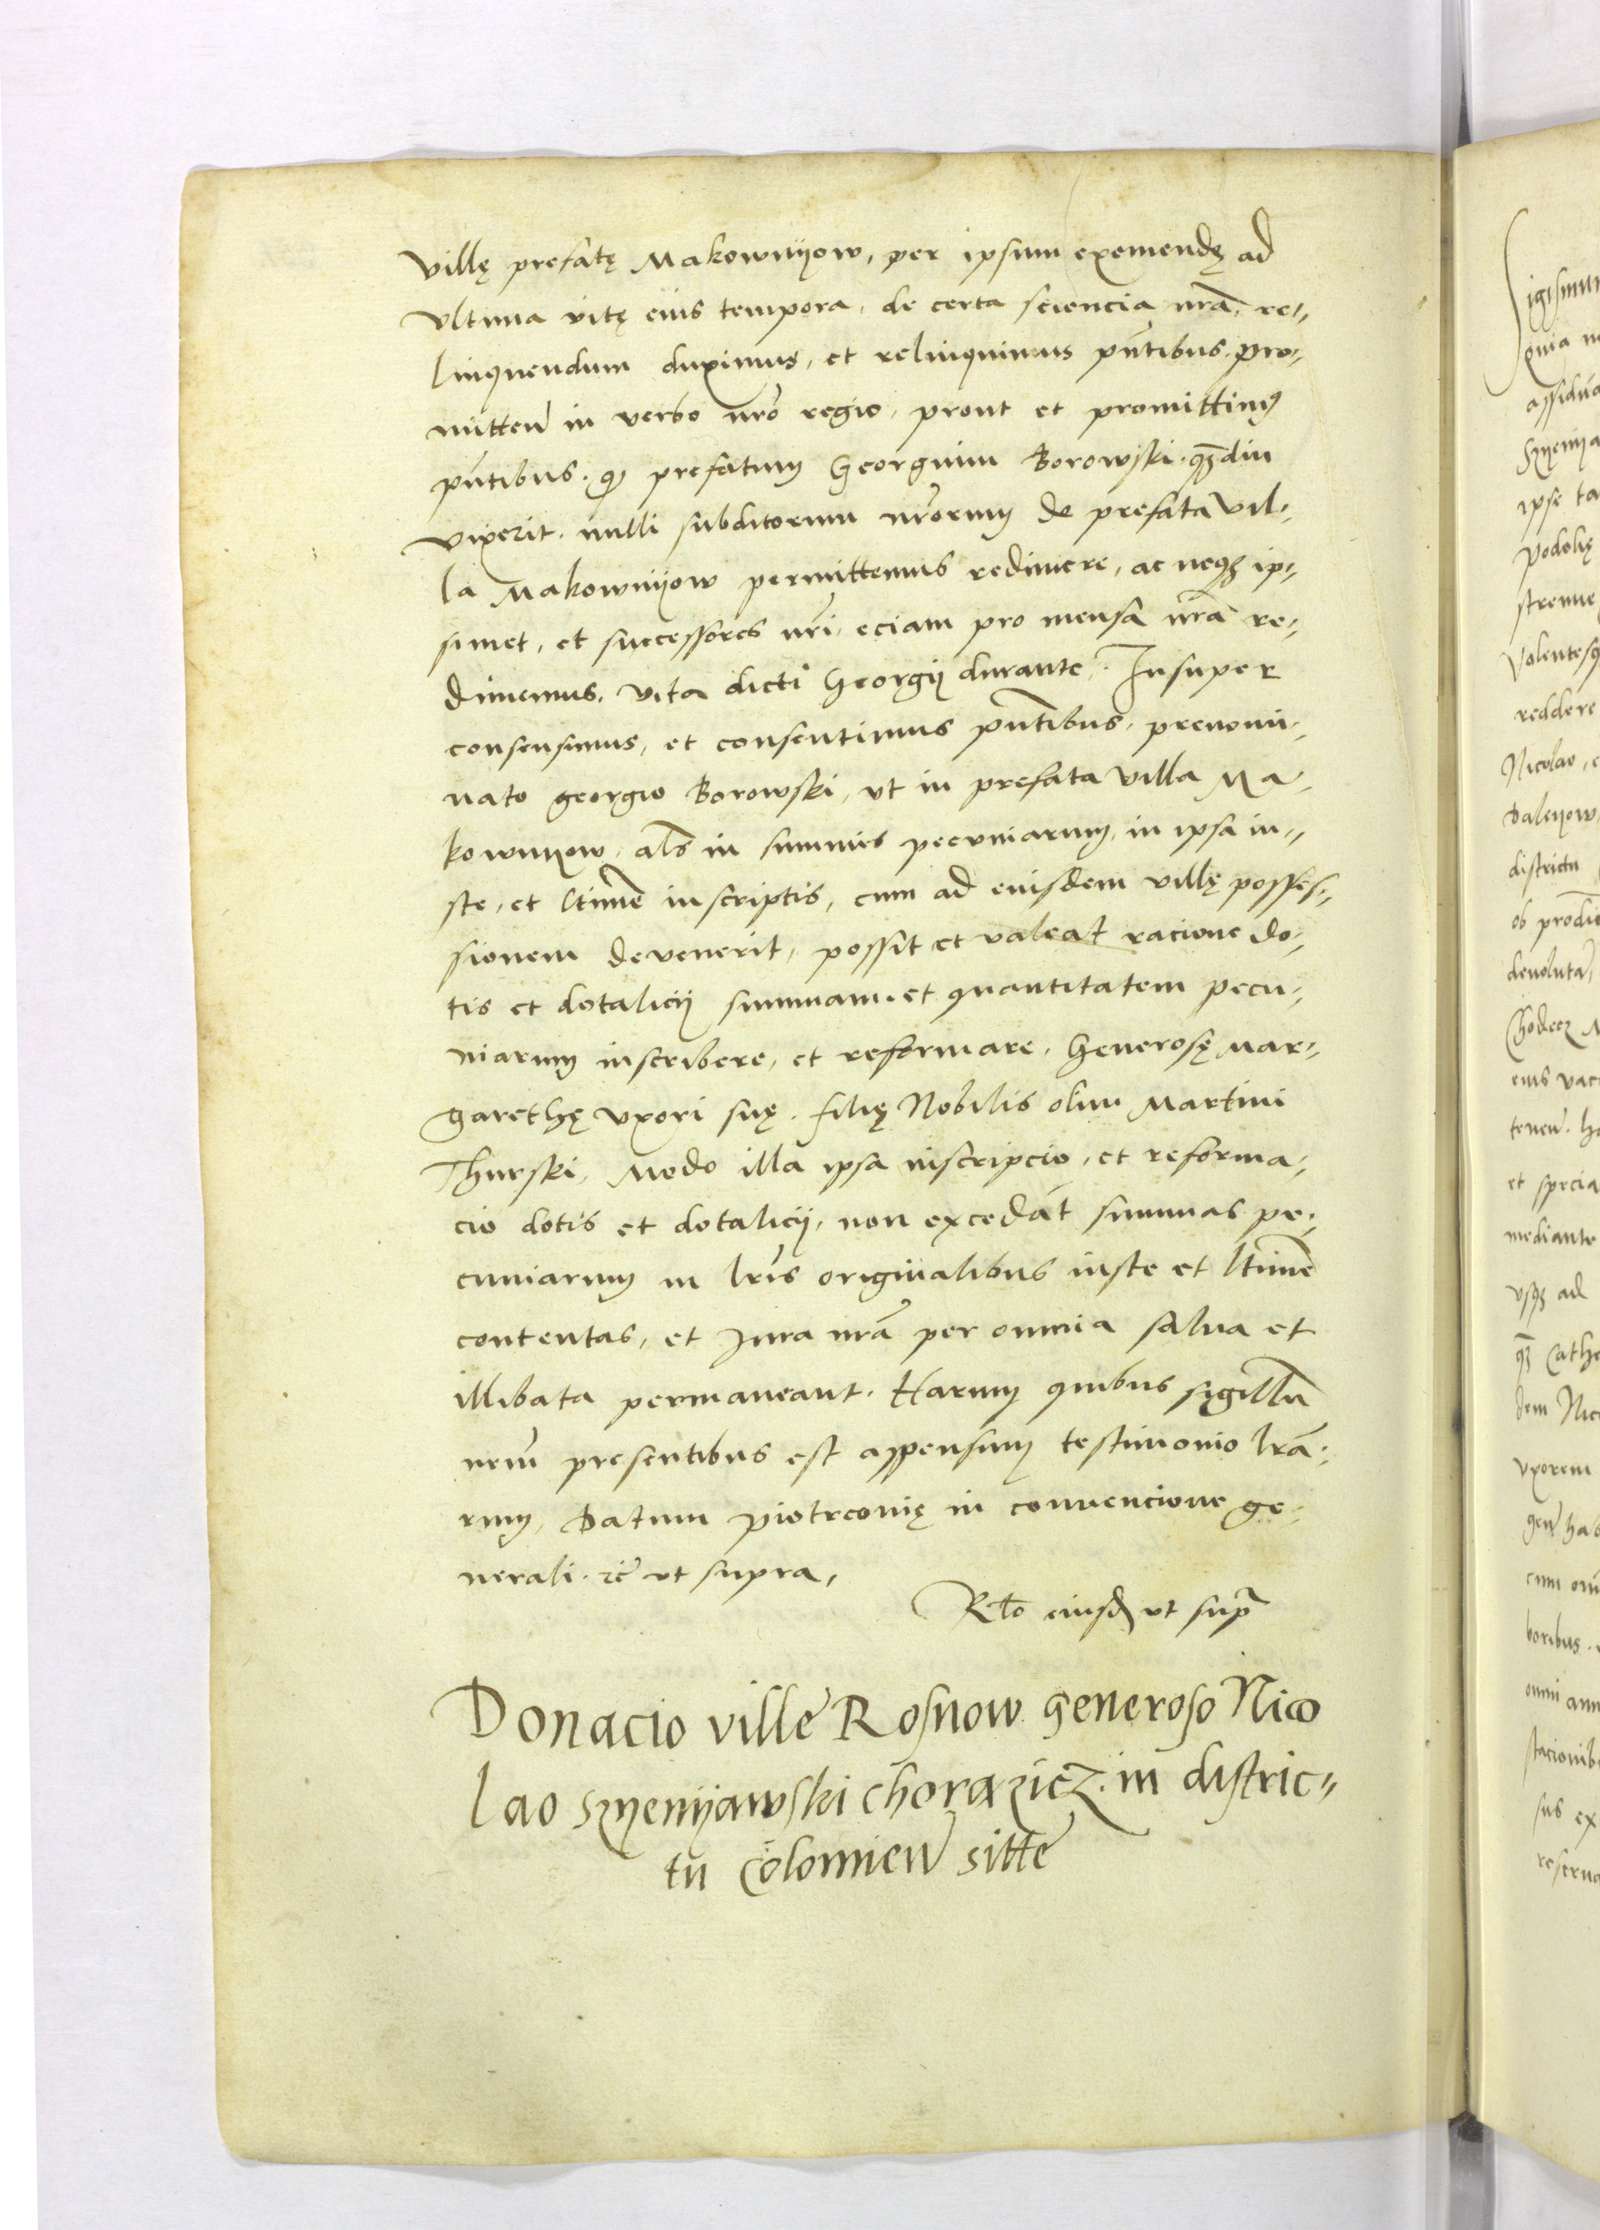 villę prefatę Makownyow, per ipsum exemendę ad
ultima vitę eius tempora, de certa sciencia nrã, re-
linquendum duximus, et relinquimus pñtibus, pro-
mitteñ in verbo nrõ regio, prout et promittimus
pñtibus, qd prefatum Georgium Borowski, qzdiu
vixerit, nulli subditorum nrõrum de prefata vil-
la Makownyow permittemus redimere, ac neqz ip-
simet, et successores nrĩ, eciam pro mensa nrã re-
dimemus, vita dicti Georgij durante, Insuper
consensimus, et consentimus pñtibus, prenomi-
nato georgio Borowski, ut in prefata villa Ma-
kownyow, als in summis pecuniarum, in ipsa iu-
ste, et ltimẽ inscriptis, cum ad eiusdem villę posses-
sionem devenerit, possit et valeat racione do-
tis et dotalicij summam et quantitatem pecu-
niarum inscribere, et reformare, Generosę Mar-
garethę uxori suę, filię Nobilis olim Martini
Thurski, Modo illa ipsa inscripcio, et reforma-
cio dotis et dotalicij, non excedãt summas pe-
cuniarum in lrĩs originalibus iuste et ltimẽ
contentas, et Jura nrã per omnia salva et
illibata permaneant, Harum quibus sigillũ
nrm̃ presentibus est appensum testimonio lrã-
rum, Datum piotrconię in convencione ge-
nerali, rc̃ ut supra,
Rlto eiusd ut supr
Donacio ville Rosnow generoso Nico
lao Szyenyawski chorązicz in distric-
tu Colomieñ sitte
Sigismun
assidua
ipse ta
podolię
strenue
volentesq
reddere
Nicolao
Daleyow
districtu
devoluta
Chodecz
et specia
mediante
uxorem